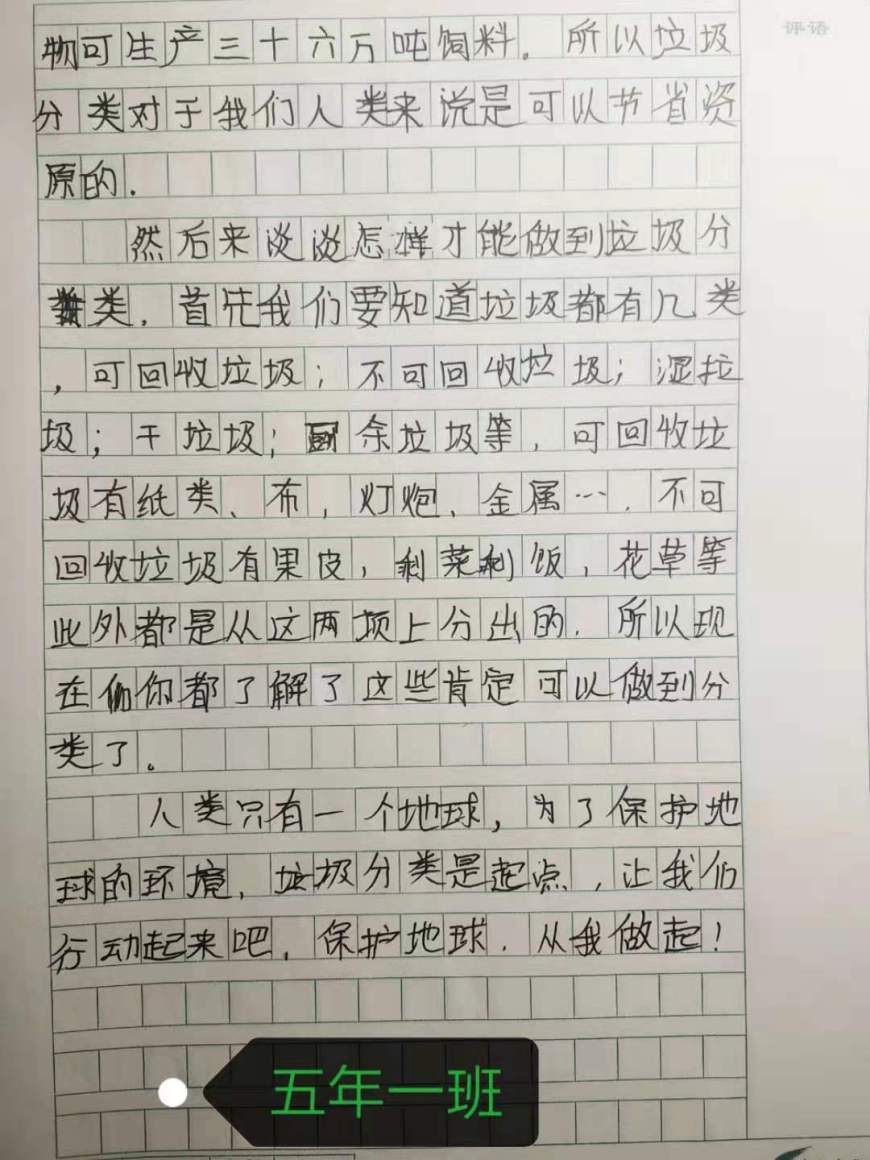 评语
物可生产三十六万吨饲料．所以垃圾
分类对于我们人类来说是可以节省资
原的．
然后来谈谈怎样才能做到垃圾分
类．首先我们要知道垃圾都有几类
，可回收垃圾；不可回收垃圾；湿拉
圾；干垃圾；厨余垃圾等，可回收垃
圾有纸类、布，灯炮、金属…．不可
回收垃圾有果皮，剩菜剩饭，花草等
此外都是从这两项上分出的．所以现
在你都了解了这些肯定可以做到分
类了。
人类只有一个地球，为了保护地
球的环境，垃圾分类是起点，让我们
行动起来吧．保护地球．从我做起！
五年一班